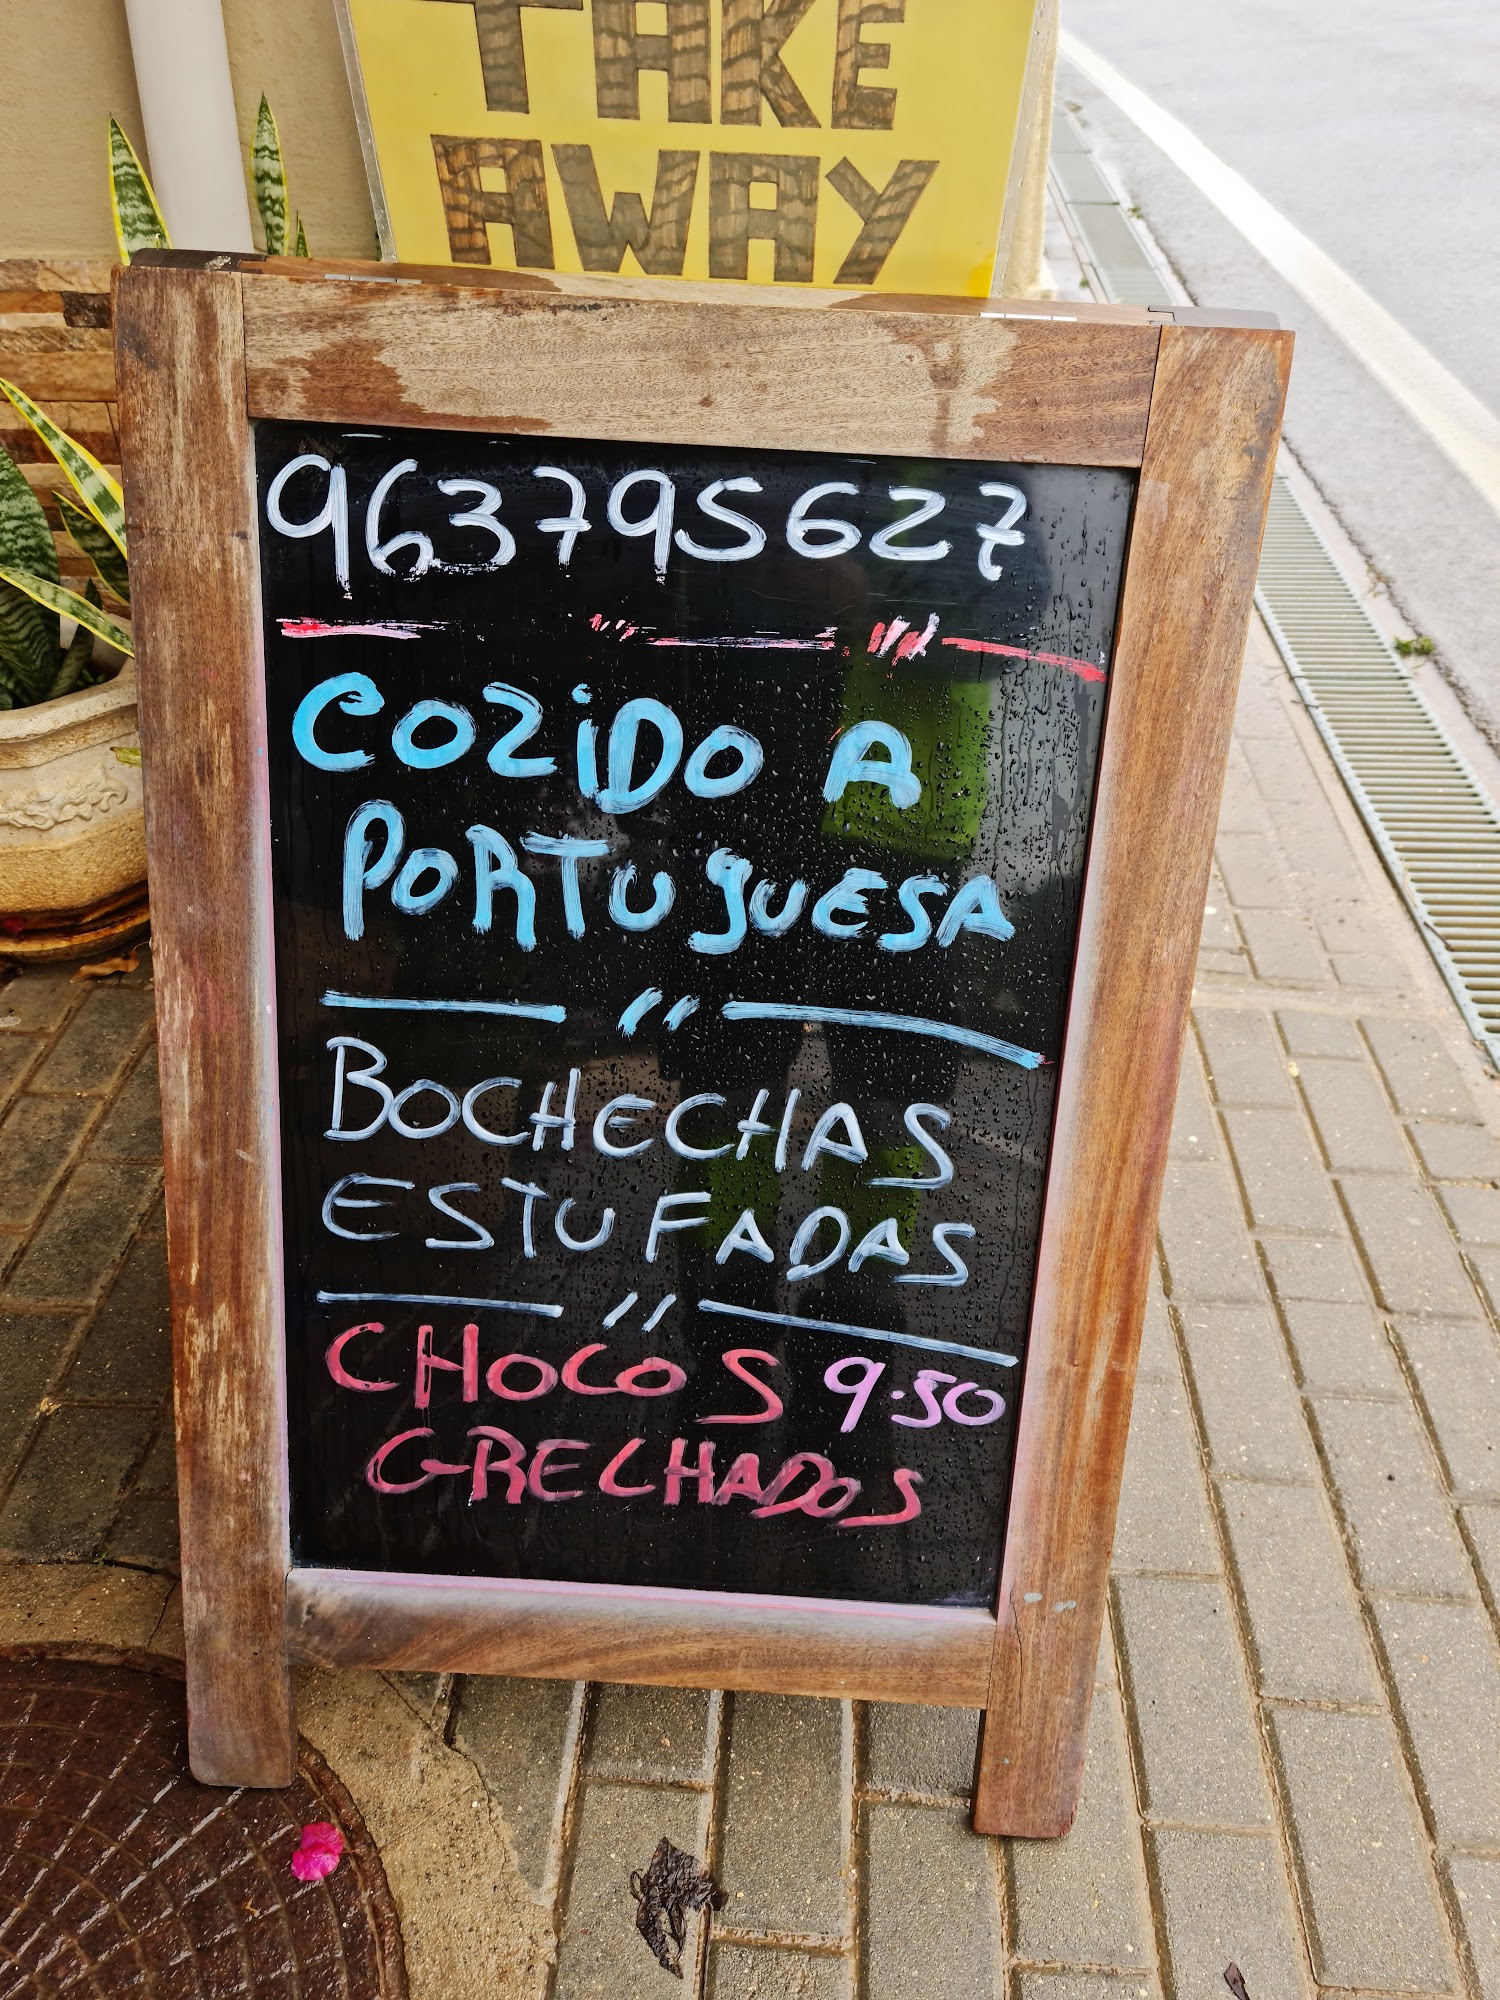 TAKE
AWAY
963795627
COZiDO A
PORTUGUESA
BOCHECHAS
ESTUFADAS
CHOCOS 9.50
GRECHADOS